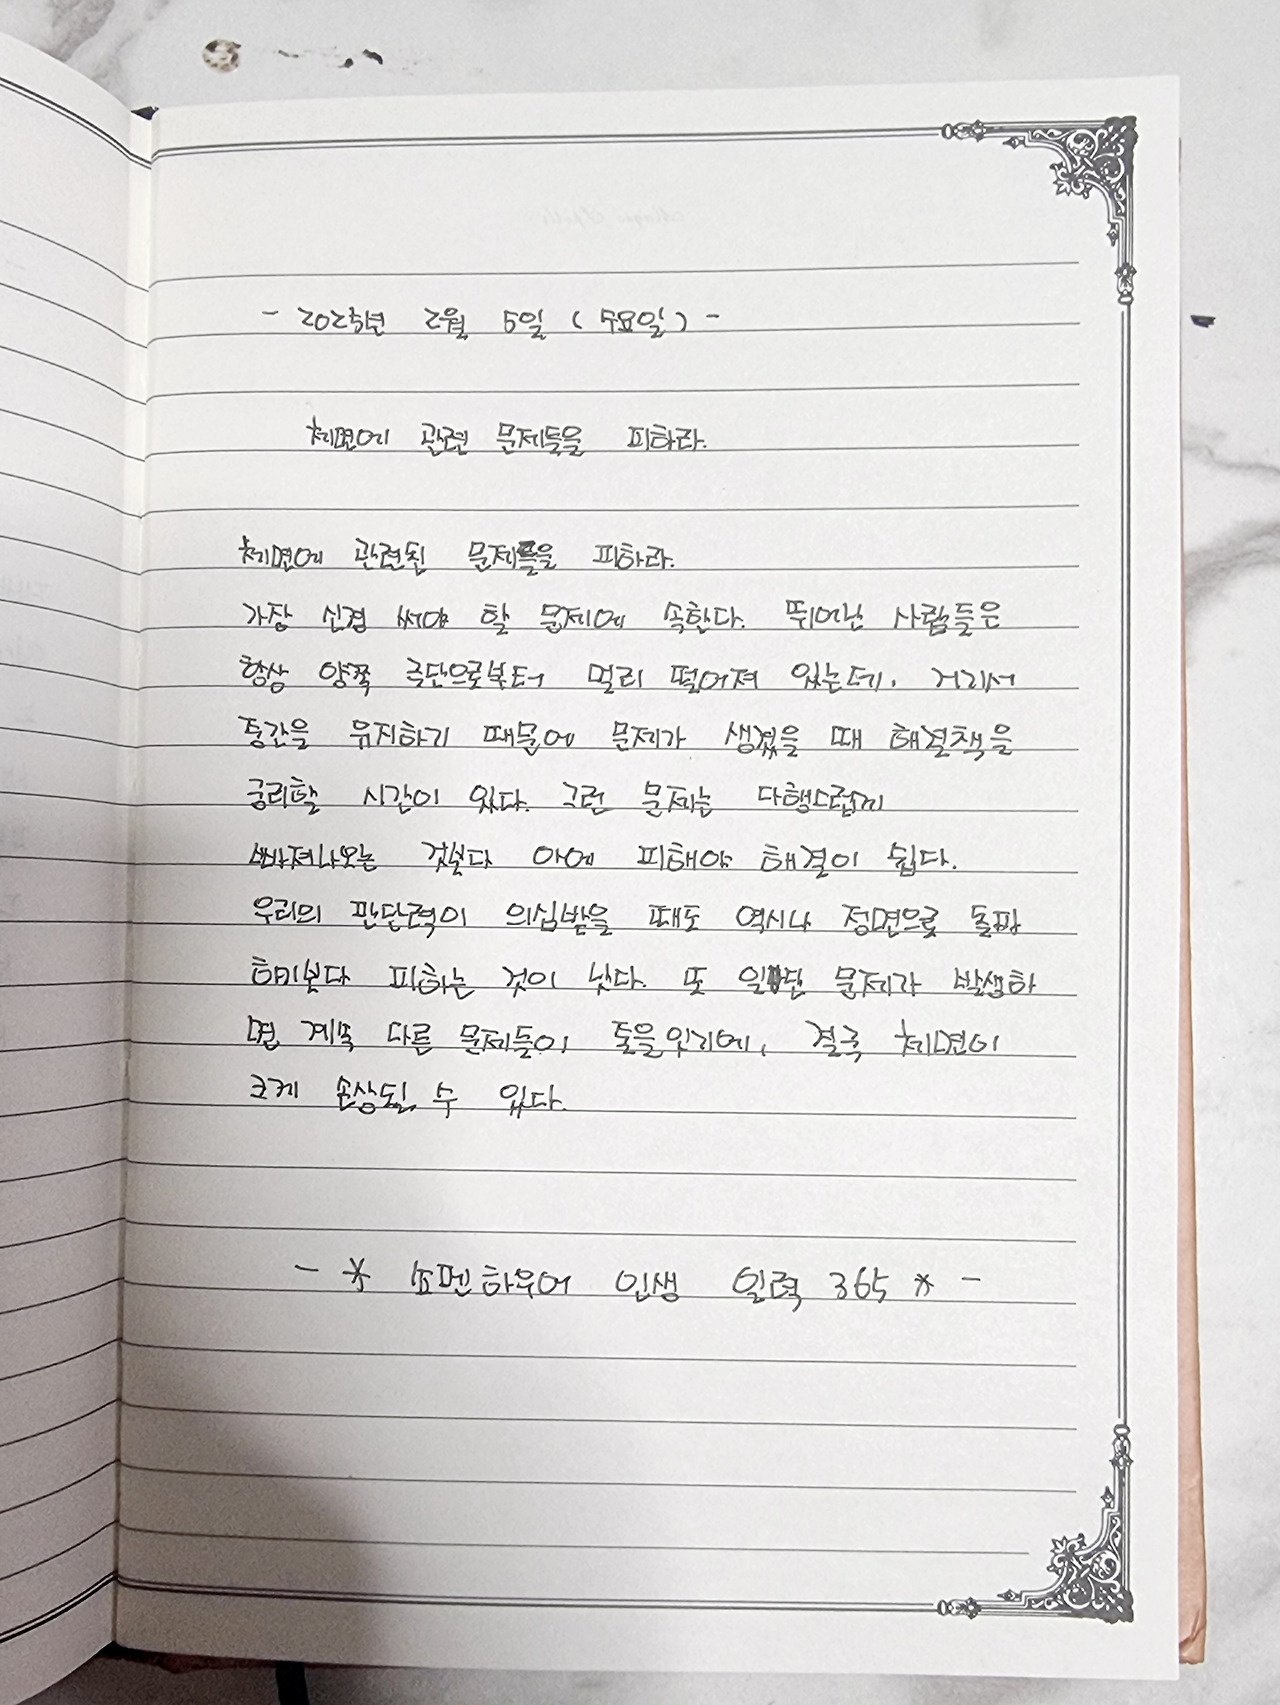 - 2025년 2월 5일 (수요일) -
체면에 관련 문제들을 피하라.
체면에 관련된 문제들을 피하라.
가장 신경 써야 할 문제에 속한다. 뛰어난 사람들은
항상 양쪽 극단으로부터 멀리 떨어져 있는데, 거리서
중간을 유지하기 때문에 문제가 생겼을 때 해결책을
궁리할 시간이 있다. 그런 문제는 다행스럽게
빠져나오는 것보다 아예 피해야 해결이 쉽다.
우리의 판단력이 의심받을 때도 역시나 정면으로 돌파
하기보다 피하는 것이 낫다. 또 일단 문제가 발생하
면 계속 다른 문제들이 줄을잇기에, 결국 체면이
크게 손상될 수 있다.
- * 쇼펜하우어 인생 일력 365 * -